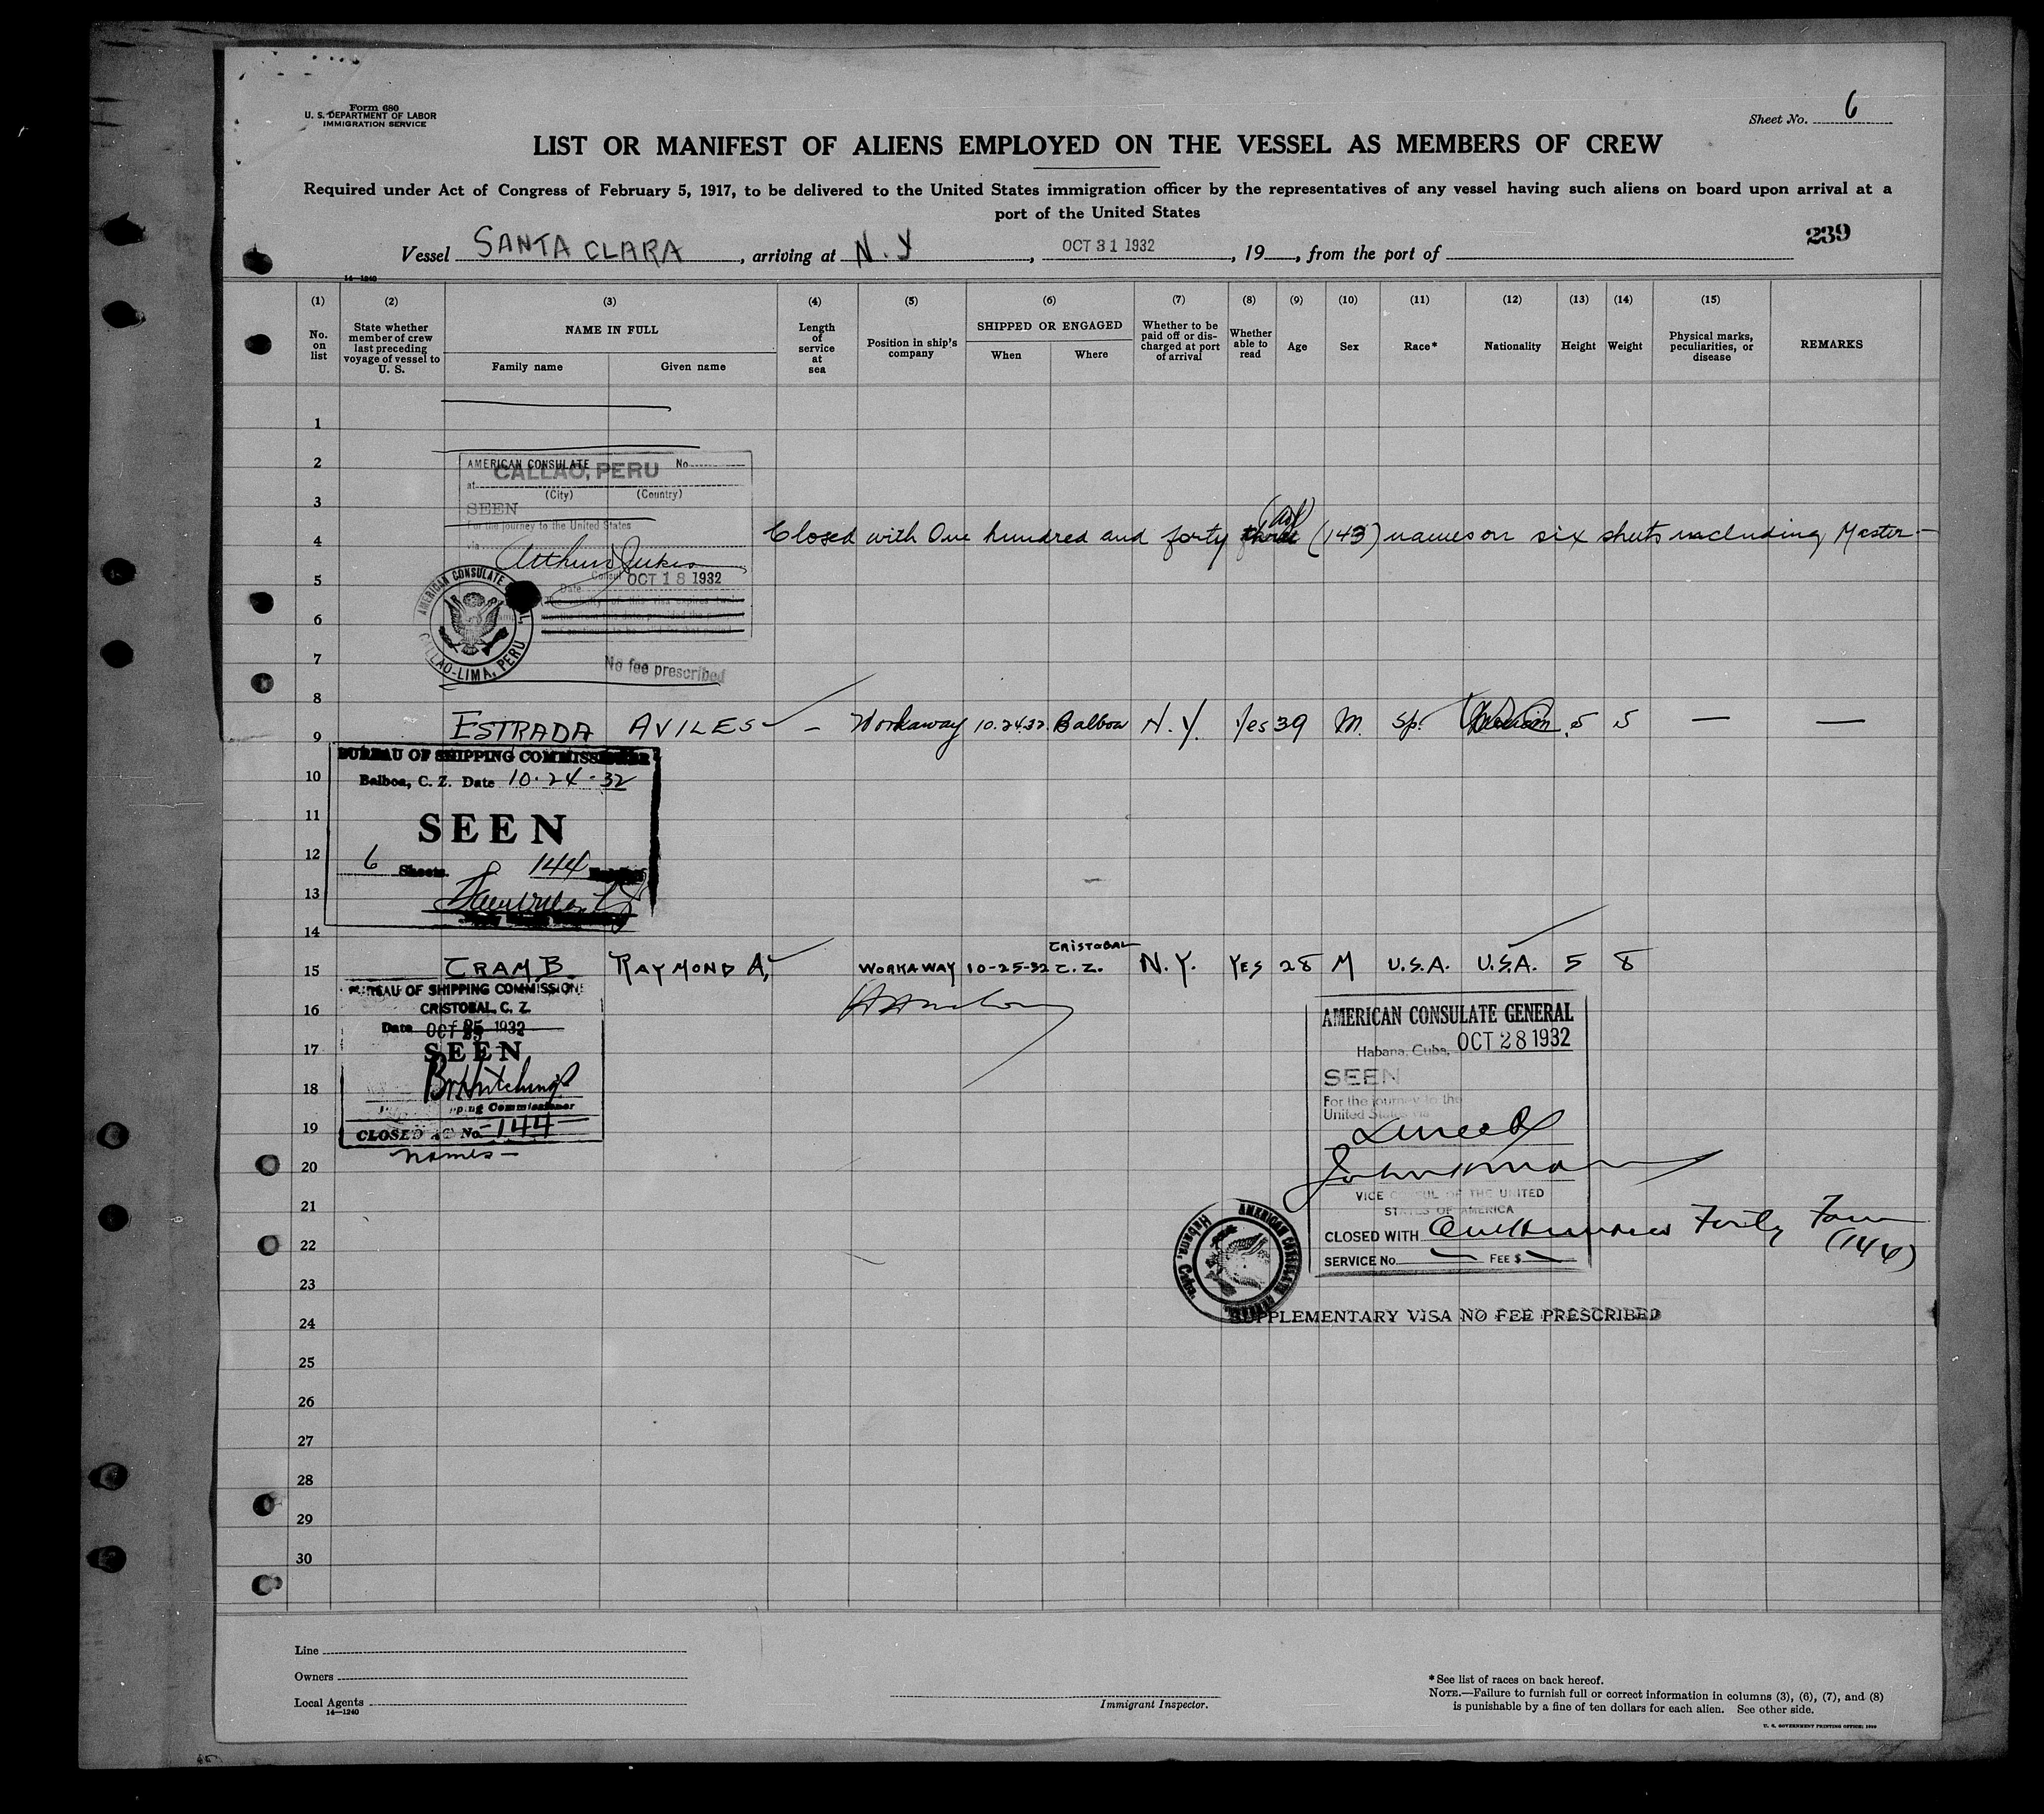 Form 680
U. S. DEPARTMENT OF LABOR
IMMIGRATION SERVICE
Sheet No. 6
LIST OR MANIFEST OF ALIENS EMPLOYED ON THE VESSEL AS MEMBERS OF CREW
Required under Act of Congress of February 5, 1917, to be delivered to the United States immigration officer by the representatives of any vessel having such aliens on board upon arrival at a
port of the United States
239
Vessel SANTA CLARA, arriving at N.Y, OCT 31 1932, 19, from the port of
14—1240
(1) (2) (3) (4) (5) (6) (7) (8) (9) (10) (11) (12) (13) (14) (15)
No. on list
State whether member of crew last preceding voyage of vessel to U. S.
NAME IN FULL
Family name
Given name
Length of service at sea
Position in ship's company
SHIPPED OR ENGAGED
When
Where
Whether to be paid off or discharged at port of arrival
Whether able to read
Age
Sex
Race*
Nationality
Height
Weight
Physical marks, peculiarities, or disease
REMARKS
1
2
AMERICAN CONSULATE No.
CALLAO, PERU
at
(City) (Country)
3
SEEN
For the journey to the United States
4
via
Closed with One hundred and forty (143) names on six sheets including Master
Consul OCT 18 1932
Date
5
6
AMERICAN CONSULATE
CALLAO-LIMA, PERU
7
No fee prescribed
8
9 ESTRADA AVILES — Workaway 10.24.32. Balboa N.Y. Yes 39 M. Sp. 5 5 — —
BUREAU OF SHIPPING COMMISSIONER
10
Balboa, C. Z. Date 10-24-32
11
SEEN
12
6 Sheets. 144
13
14
15 CRAMB RAYMOND A, WORKAWAY 10-25-32 CRISTOBAL C.Z. N.Y. YES 28 M U.S.A. U.S.A. 5 8
BUREAU OF SHIPPING COMMISSION
CRISTOBAL, C. Z.
16
Date OCT 25 1932
17
SEEN
18
Hutchings
pping Commissioner
19
CLOSED AS No. 144
names—
AMERICAN CONSULATE GENERAL
Habana, Cuba, OCT 28 1932
SEEN
For the journey to the
United States via
Direct
20
VICE CONSUL OF THE UNITED
STATES OF AMERICA
21
CLOSED WITH One Hundred Forty Four
(144)
22
SERVICE No. — FEE $ —
AMERICAN CONSULATE GENERAL
Habana, Cuba.
23
SUPPLEMENTARY VISA NO FEE PRESCRIBED
24
25
26
27
28
29
30
Line
Owners
Local Agents
14—1240
Immigrant Inspector.
*See list of races on back hereof.
NOTE.—Failure to furnish full or correct information in columns (3), (6), (7), and (8)
is punishable by a fine of ten dollars for each alien. See other side.
U. S. GOVERNMENT PRINTING OFFICE: 1930